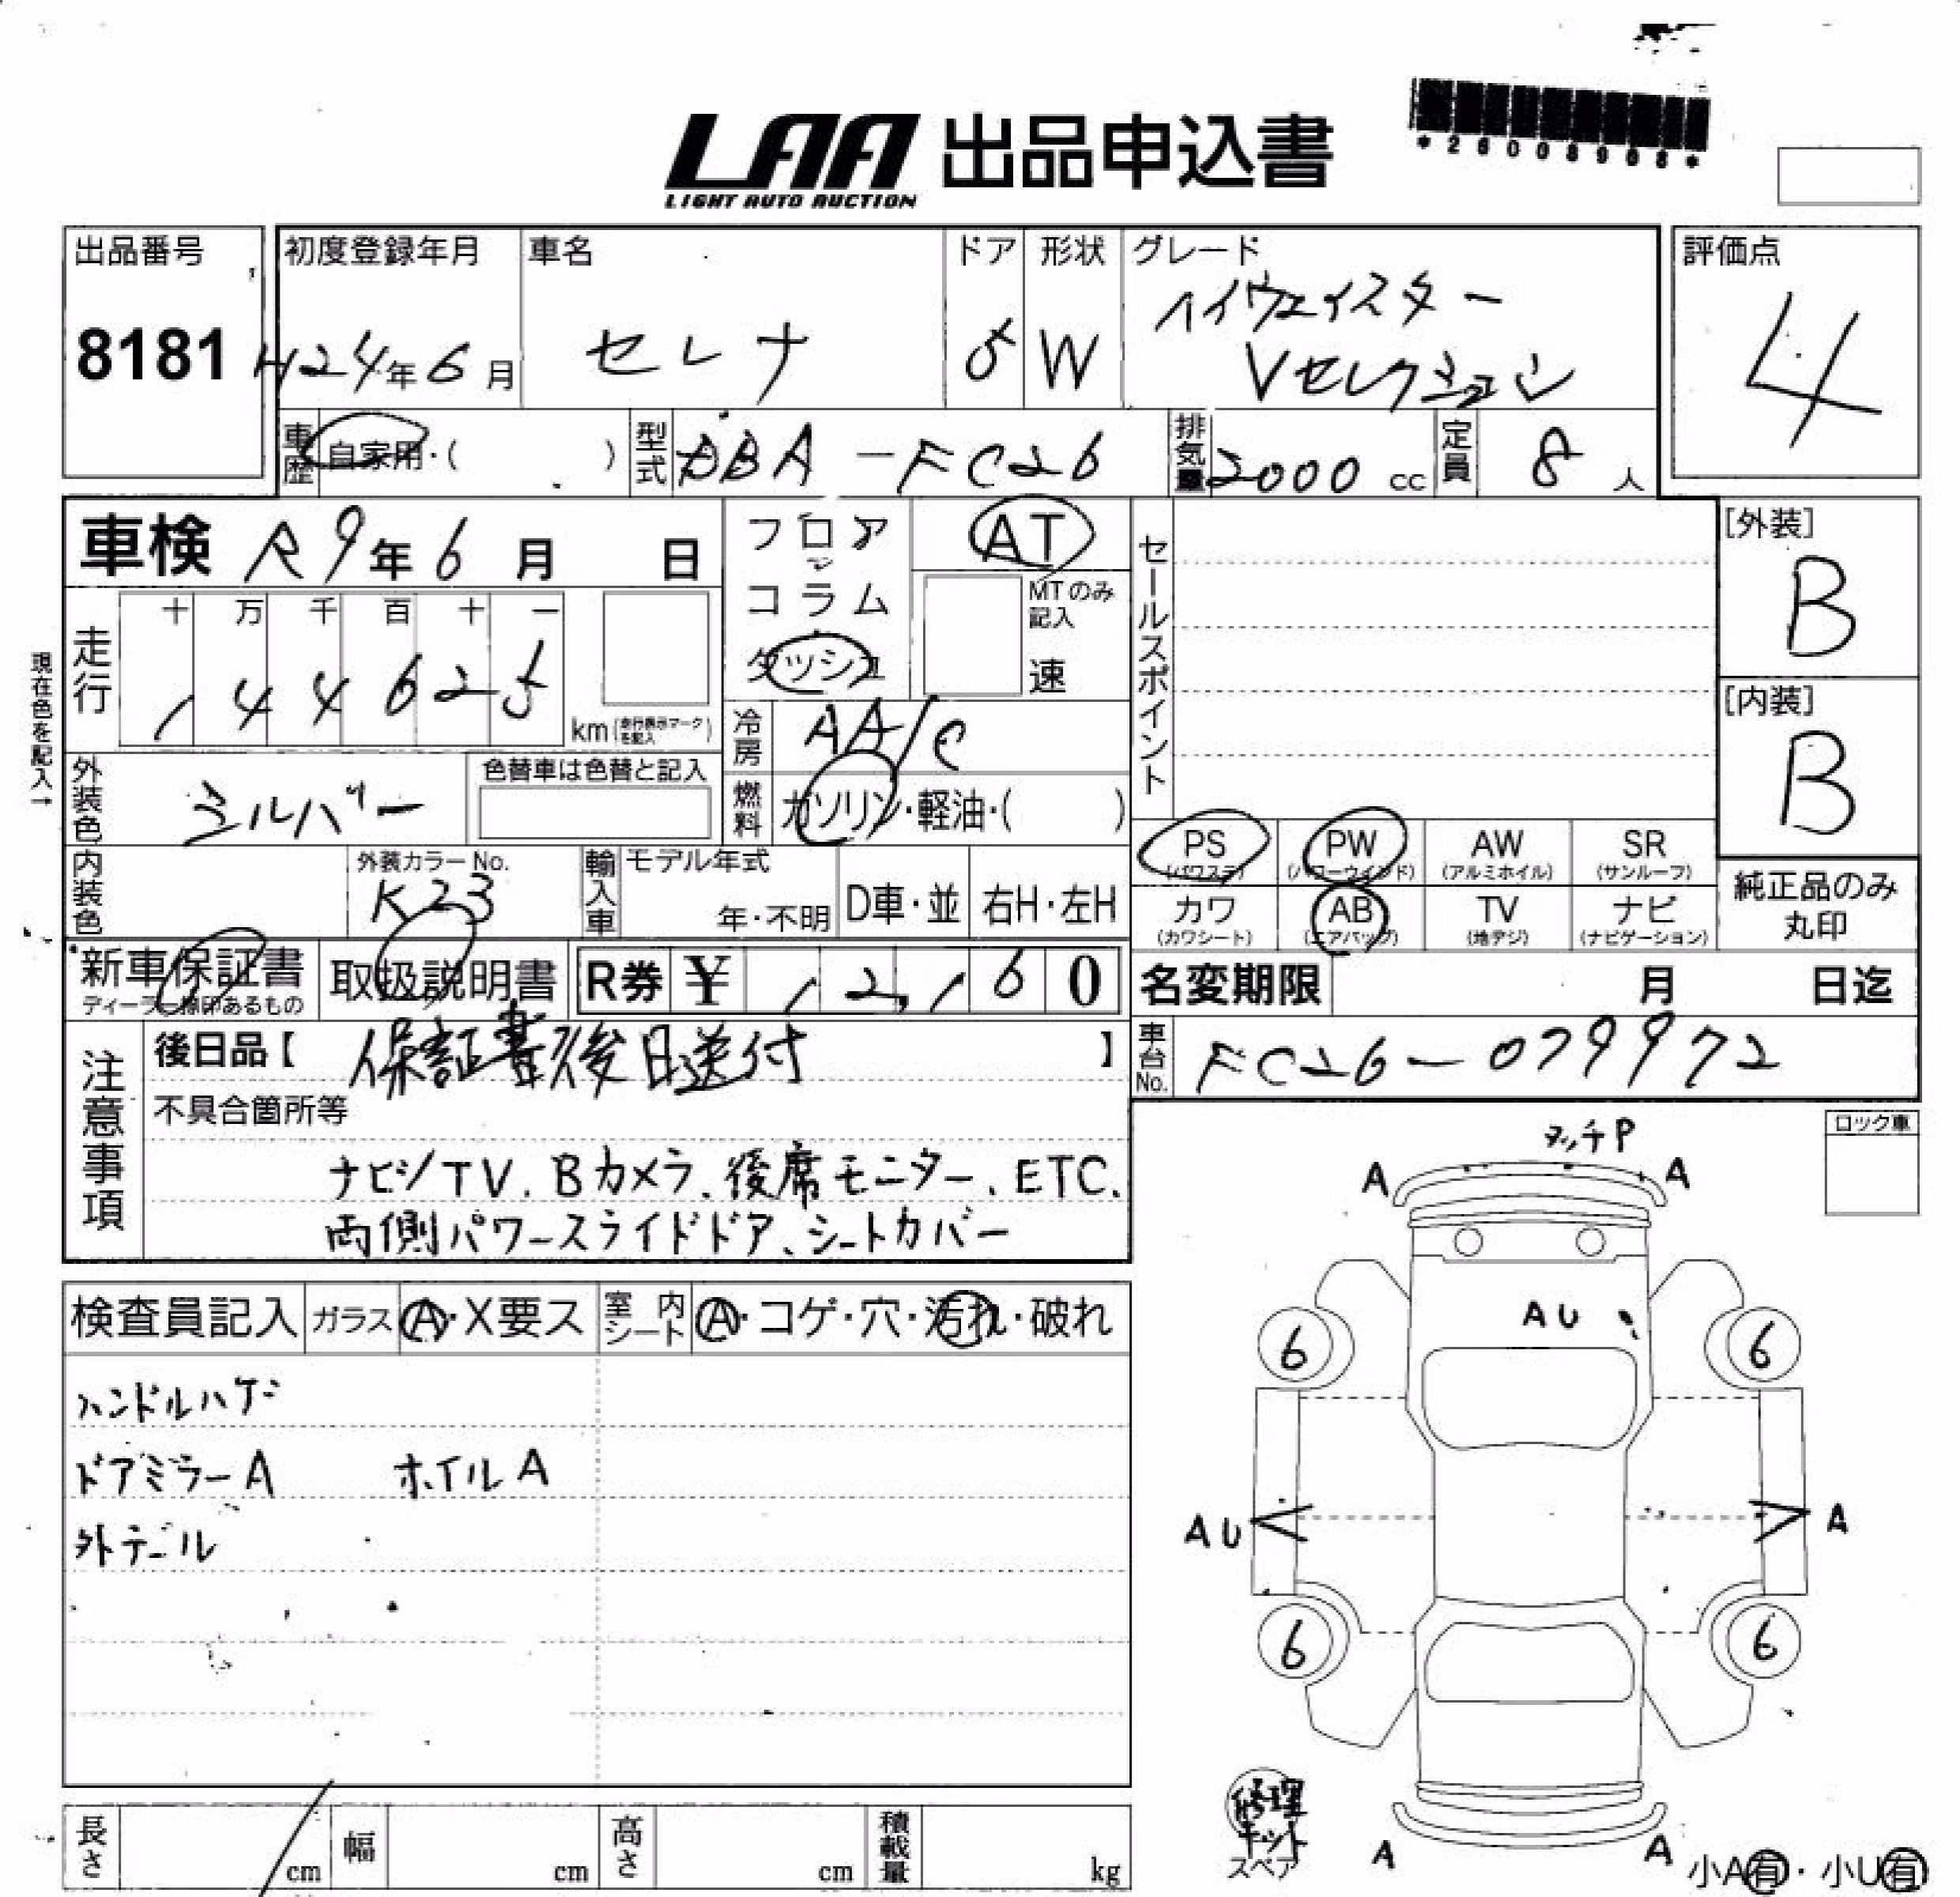 *26008908*
LAA 出品申込書
LIGHT AUTO AUCTION
出品番号
8181
初度登録年月
H24年6月
車名
セレナ
ドア
5
形状
W
グレード
ハイウェイスター
Vセレクション
評価点
4
車歴 自家用・( )
型式 DBA-FC26
排気量 2000 cc
定員 8 人
車検 R9年6月 日
フロア
コラム
ダッシュ
AT
MTのみ
記入
速
セールスポイント
[外装]
B
[内装]
B
現在色を記入→
走行
十 万 千 百 十 一
1 4 4 6 2 5
km(走行表示マークを記入)
冷房 AA/C
燃料 ガソリン・軽油・( )
外装色 シルバー
色替車は色替と記入
内装色
外装カラーNo.
K23
輸入車
モデル年式
年・不明
D車・並
右H・左H
PS
(パワステ)
PW
(パワーウィンド)
AW
(アルミホイル)
SR
(サンルーフ)
カワ
(カワシート)
AB
(エアバッグ)
TV
(地デジ)
ナビ
(ナビゲーション)
純正品のみ
丸印
新車保証書
ディーラー捺印あるもの
取扱説明書
R券 ¥ 12,160
名変期限 月 日迄
車台No. FC26-079972
注意事項
後日品【 保証書後日送付 】
不具合箇所等
ナビ/TV、Bカメラ、後席モニター、ETC、
両側パワースライドドア、シートカバー
ロック車
タッチP
A A
検査員記入 ガラス A・X要ス 室内シート A・コゲ・穴・汚れ・破れ
ハンドルハゲ
ドアミラーA ホイルA
AU
6 6
AU A
6 6
修理
キット
スペア
A A
小A有・小U有
長さ cm 幅 cm 高さ cm 積載量 kg